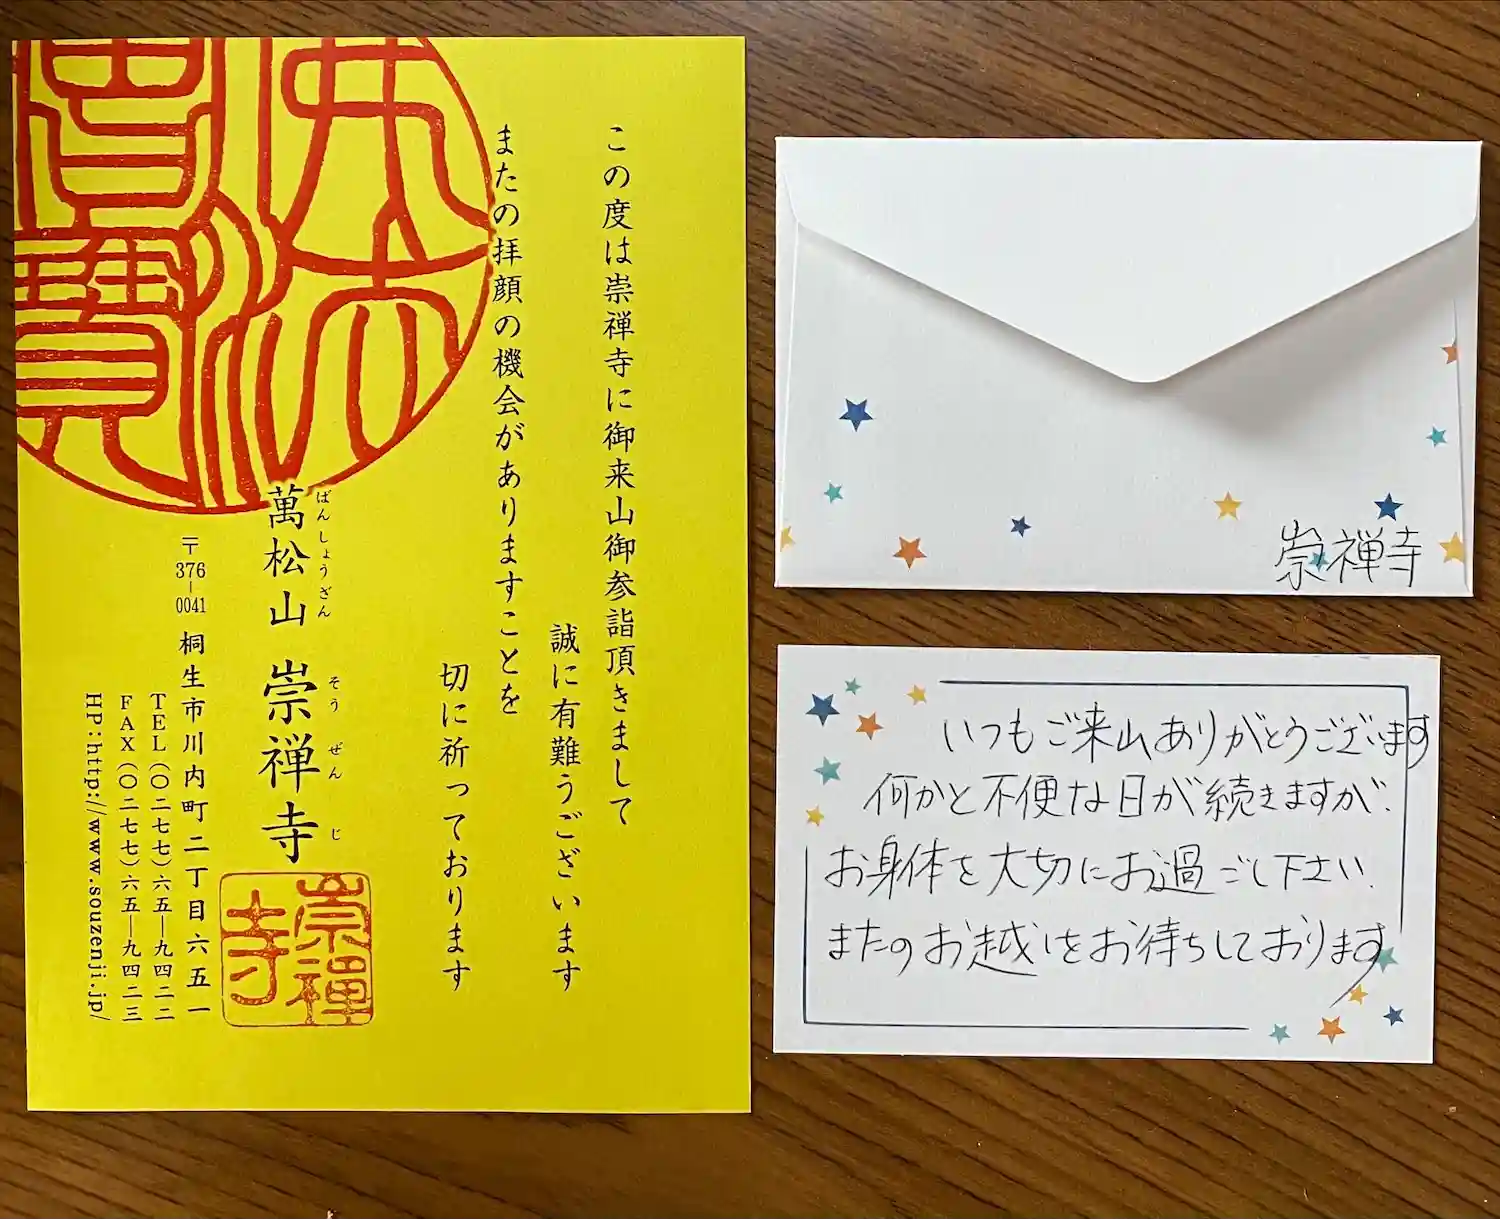 この度は崇禅寺に御来山御参詣頂きまして
誠に有難うございます
またの拝顔の機会がありますことを
切に祈っております
ばんしょうざん そう ぜん じ
萬松山 崇禅寺
〒376-0041 桐生市川内町二丁目六五一
TEL(〇二七七)六五―九四二二
FAX(〇二七七)六五―九四二三
HP:http://www.souzenji.jp/
崇禅寺
崇禅寺
いつもご来山ありがとうございます
何かと不便な日が続きますが、
お身体を大切にお過ごし下さい。
またのお越しをお待ちしております